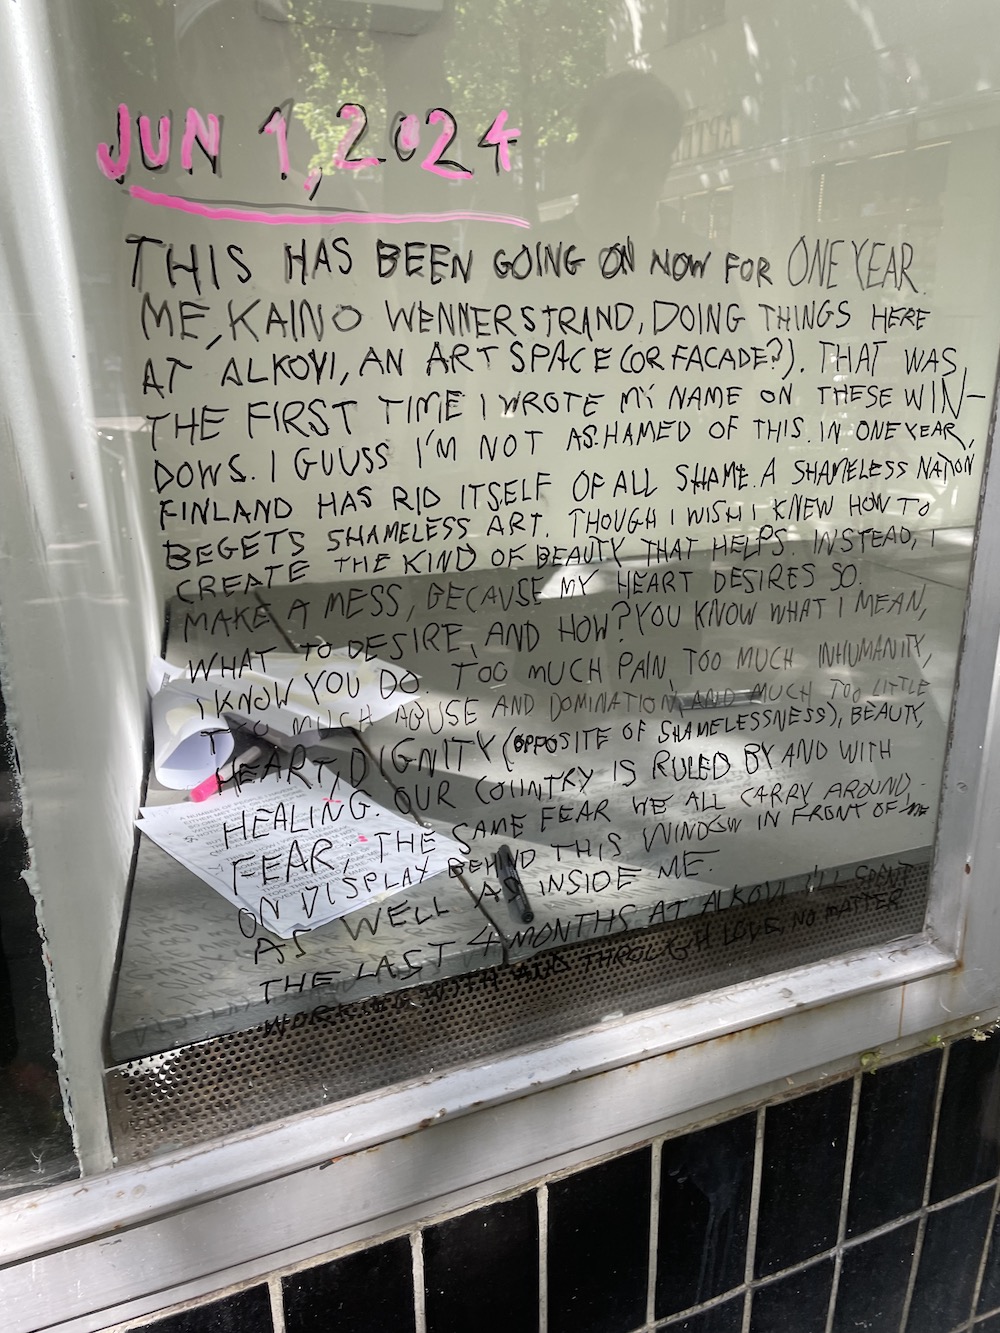 JUN 1, 2024
THIS HAS BEEN GOING ON NOW FOR ONE YEAR.
ME, KAINO WENNERSTRAND, DOING THINGS HERE
AT ALKOVI, AN ART SPACE (OR FACADE?). THAT WAS
THE FIRST TIME I WROTE MY NAME ON THESE WIN-
DOWS. I GUUSS I'M NOT ASHAMED OF THIS. IN ONE YEAR,
FINLAND HAS RID ITSELF OF ALL SHAME. A SHAMELESS NATION
BEGETS SHAMELESS ART. THOUGH I WISH I KNEW HOW TO
CREATE THE KIND OF BEAUTY THAT HELPS. INSTEAD, I
MAKE A MESS, BECAUSE MY HEART DESIRES SO.
WHAT TO DESIRE, AND HOW? YOU KNOW WHAT I MEAN,
I KNOW YOU DO. TOO MUCH PAIN, TOO MUCH INHUMANITY,
TOO MUCH ABUSE AND DOMINATION, AND MUCH TOO LITTLE
HEART, DIGNITY (OPPOSITE OF SHAMELESSNESS), BEAUTY,
HEALING. OUR COUNTRY IS RULED BY AND WITH
FEAR. THE SAME FEAR WE ALL CARRY AROUND,
ON DISPLAY BEHIND THIS WINDOW IN FRONT OF ME
AS WELL AS INSIDE ME.
THE LAST 4 MONTHS AT ALKOVI I'LL SPENT
WORKING WITH THROUGH LOVE, NO MATTER